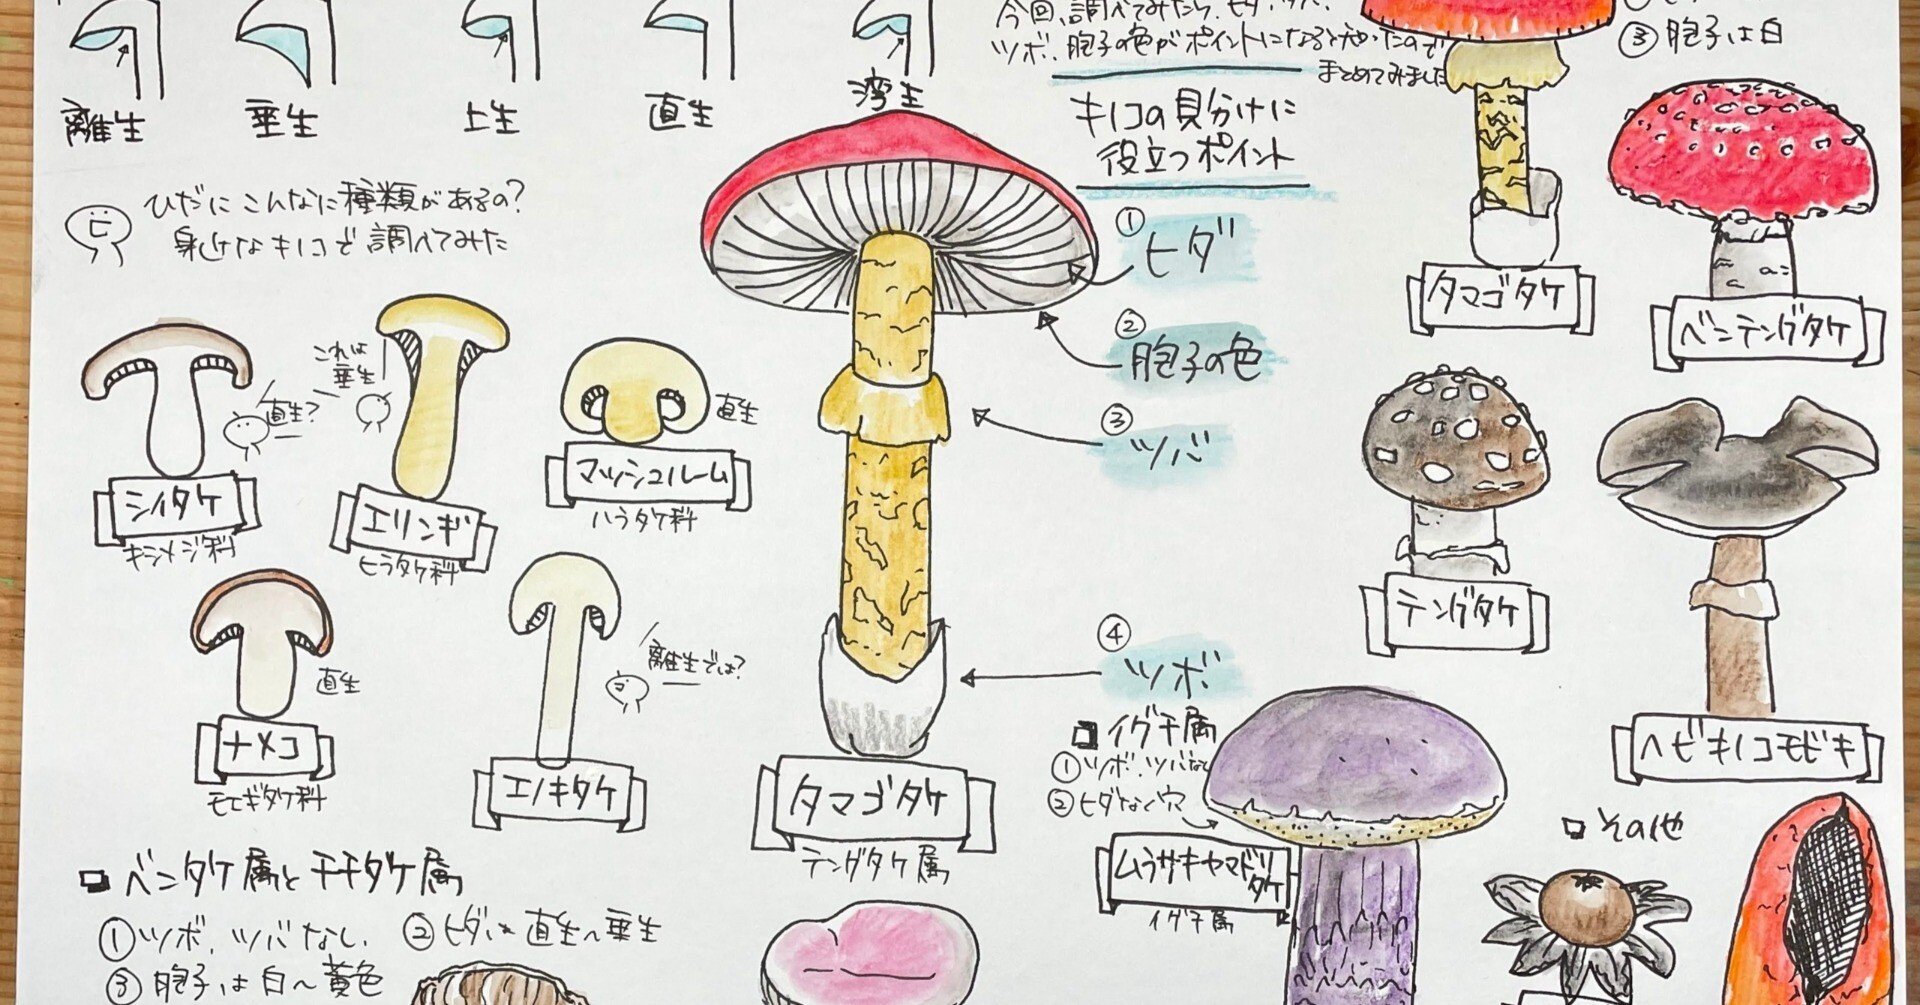 離生
垂生
上生
直生
湾生
ひだにこんなに種類があるの?
身近なキノコで調べてみた
ヒ
今回、調べてみたら、ヒダ、ツバ、
ツボ、胞子の色がポイントになると分かったので
まとめてみました
キノコの見分けに
役立つポイント
① ヒダ
② 胞子の色
③ ツバ
④ ツボ
③ 胞子は白
タマゴタケ
ベニテングタケ
テングタケ
ヘビキノコモドキ
直生?
シイタケ
キシメジ科
これは
垂生
エリンギ
ヒラタケ科
直生
マッシュルーム
ハラタケ科
直生
ナメコ
モエギタケ科
離生では?
エノキタケ
タマゴタケ
テングタケ属
イグチ属
① ツボ、ツバなし
② ヒダなく穴
ムラサキヤマドリ
タケ
イグチ属
その他
ベニタケ属とチチタケ属
① ツボ、ツバなし、 ② ヒダは直生〜垂生
③ 胞子は白〜黄色